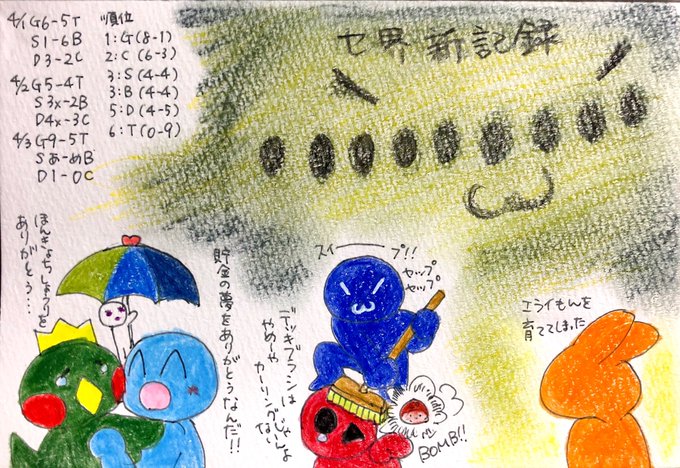 4/1G6-5T
S1-6B
D3-2C
4/2G5-4T
S3x-2B
D4x-3C
4/3G9-5T
Sあ-めB
D1-0C
順位
1:G(8-1)
2:C(6-3)
3:S(4-4)
3:B(4-4)
5:D(4-5)
6:T(0-9)
セ界新記録
ほんきょちしょうりを
ありがとう…
貯金の夢をありがとうなんだ!!
スイーープ!!
ヤップ
ヤップ
デッキブラシは
やめーや
カーリング
BOMB!!
エライもんを
育ててしまった